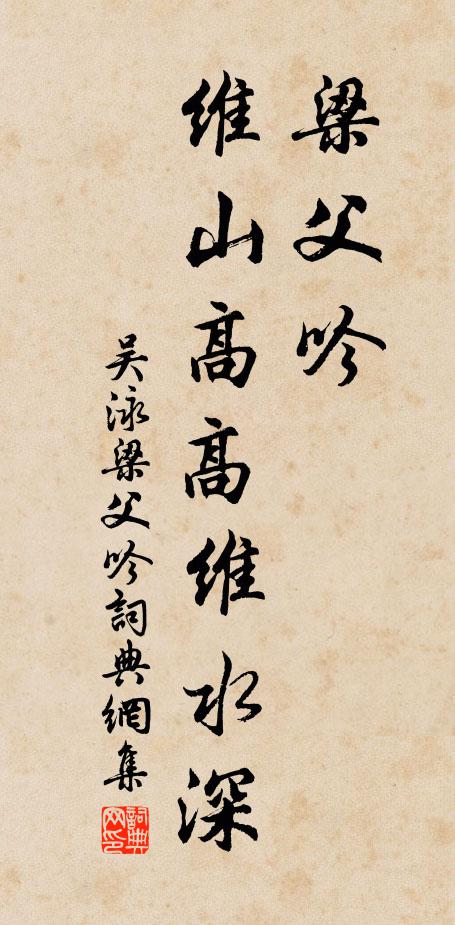 梁父吟
維山高高維水深
吴泳梁父吟詞典網集
詞典网印